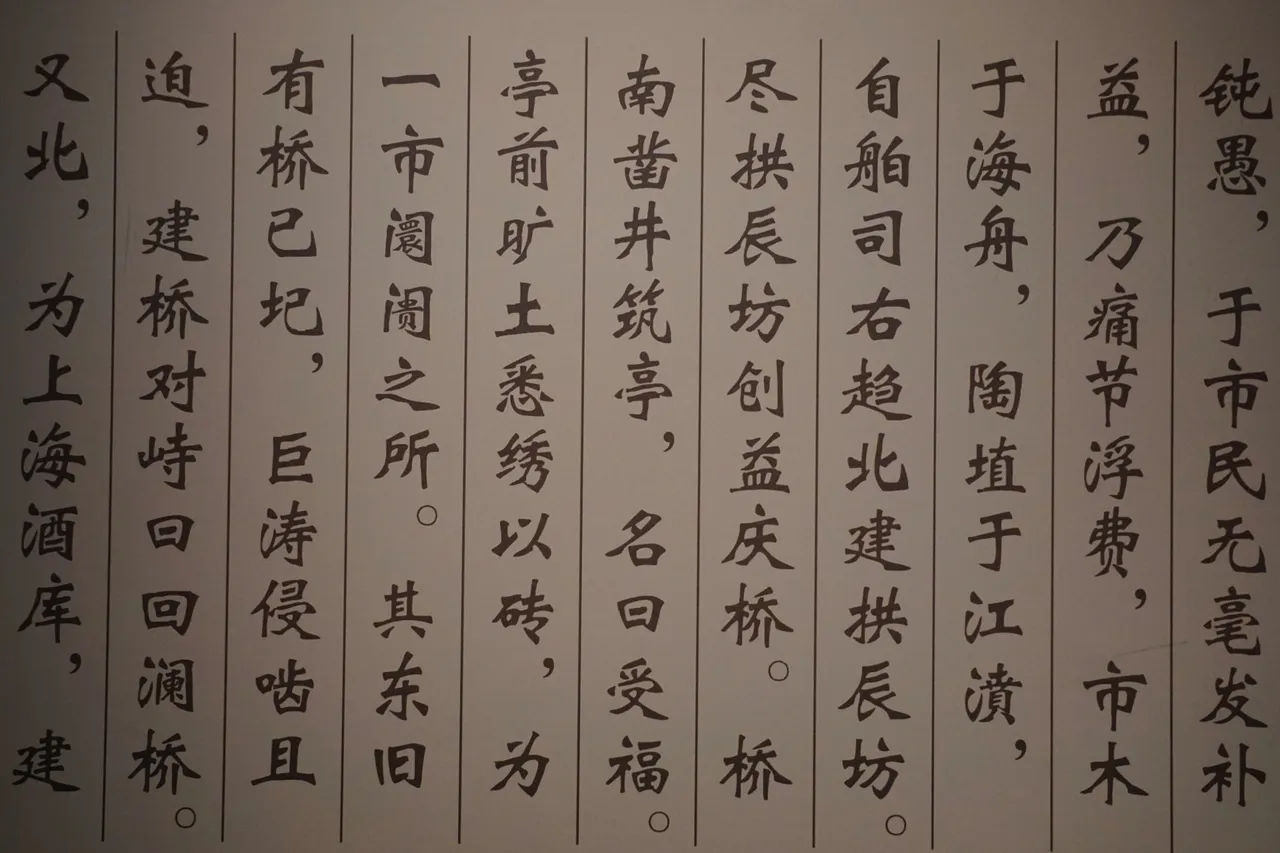 钝愚，于市民无毫发补
益，乃痛节浮费，市木
于海舟，陶埴于江濆，
自舶司右趋北建拱辰坊。
尽拱辰坊创益庆桥。桥
南凿井筑亭，名曰受福。
亭前旷土悉绣以砖，为
一市阛阓之所。其东旧
有桥已圮，巨涛侵啮且
迫，建桥对峙曰回澜桥。
又北，为上海酒库，建